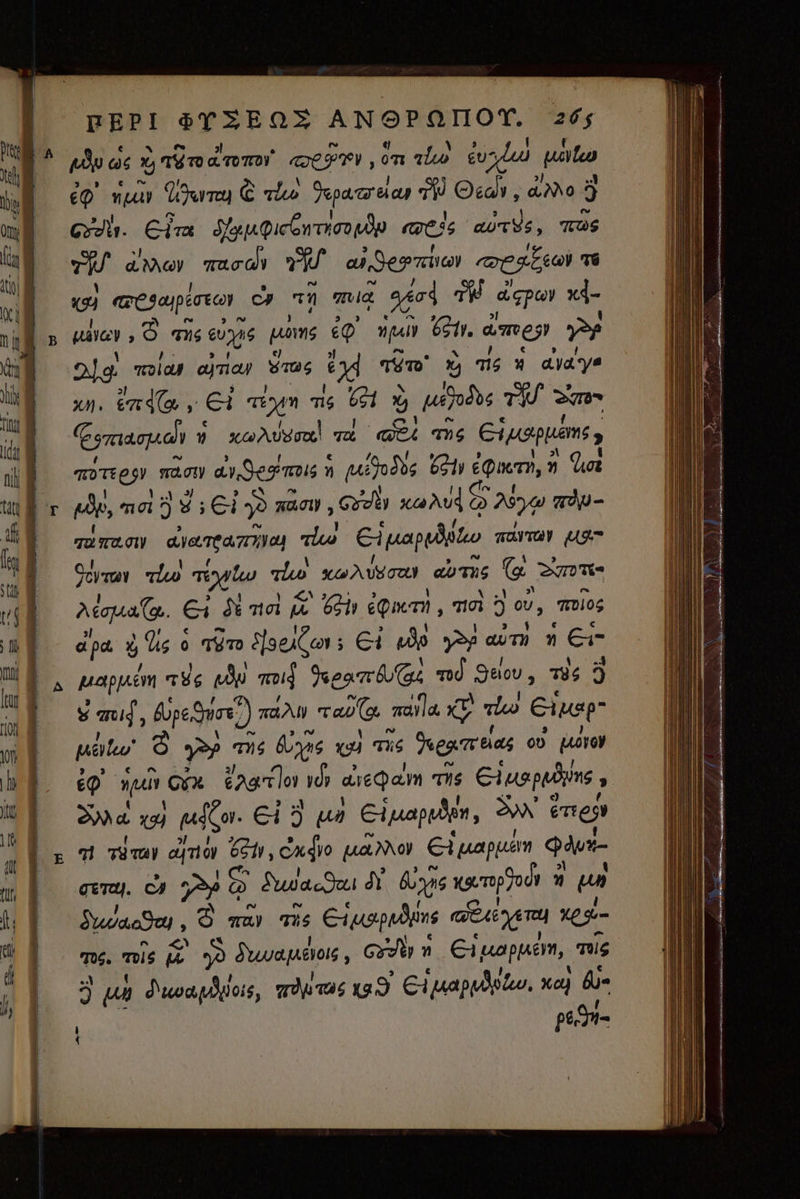 ΠΕΡΙ ΦΥΣΕΩΣ ΑΝΘΡΩΠΟΥ. 265
A μὲν ὡς καὶ τοῦτο ἄτοπον προσῆπτεν, ὅτι τὴν εὐχὴν μόνην
ἐφ' ἡμῖν τίθενται καὶ τὴν θεραπείαν τῶν Θεῶν, ἄλλο δὲ
οὐδέν. Εἶτα διαμφισβητήσομεν πρὸς αὐτοὺς, πῶς
τῶν ἄλλων πασῶν τῶν ἀνθρωπίνων πράξεών τε
καὶ προαιρέσεων ἐν τῇ ποιᾷ φέρᾳ τῶν ἄστρων κει-
B μένων, τὸ τῆς εὐχῆς μόνης ἐφ' ἡμῖν ἐστιν. ἄπορον γὰρ
διὰ ποίαν αἰτίαν οὕτως ἔχει τοῦτο· καὶ τίς ἡ ἀνάγ-
κη. ἔπειτα, Εἰ τέχνη τίς ἐστι καὶ μέθοδος τῶν ἀπο-
τροπιασμῶν ἡ κωλύουσα τὰ περὶ τῆς Εἱμαρμένης,
πότερον πᾶσιν ἀνθρώποις ἡ μέθοδός ἐστιν ἐφικτὴ, ἢ τισὶ
Γ μὲν, τισὶ δὲ οὔ; Εἰ γὰρ πᾶσιν, οὐδὲν κωλύει τῷ λόγῳ παν-
τάπασιν ἀνατραπῆναι τὴν Εἱμαρμένην πάντων μα-
θόντων τὴν τέχνην τὴν κωλύουσαν αὐτῆς τὰ ἀποτε-
λέσματα. Εἰ δέ τισι μέν ἐστιν ἐφικτὴ, τισὶ δὲ οὐ, ποίοις
ἄρα καὶ τίς ὁ τοῦτο διορίζων; Εἰ μὲν γὰρ αὐτὴ ἡ Εἱ-
Δ μαρμένη τοὺς μὲν ποιεῖ θεραπευτὰς τοῦ θείου, τοὺς δὲ
οὐ ποιεῖ, εὑρεθήσεται πάλιν ταῦτα πάντα κατὰ τὴν Εἱμαρ-
μένην· τὸ γὰρ τῆς εὐχῆς καὶ τῆς θεραπείας οὐ μόνον
ἐφ' ἡμῖν οὐκ ἔλαττον νῦν ἀνεφάνη τῆς Εἱμαρμένης,
ἀλλὰ καὶ μεῖζον. Εἰ δὲ μὴ Εἱμαρμένη, ἀλλ' ἕτερόν
E τι τούτων αἴτιόν ἐστιν, ἐκεῖνο μᾶλλον Εἱμαρμένη φανή-
σεται. ἐν γὰρ τῷ δύνασθαι δι' εὐχῆς κατορθοῦν ἢ μὴ
δύνασθαι, τὸ πᾶν τῆς Εἱμαρμένης περιέχεται κρά-
τος. τοῖς μὲν γὰρ δυναμένοις, οὐδὲν ἡ Εἱμαρμένη, τοῖς
δὲ μὴ δυναμένοις, πάντως καθ' Εἱμαρμένην. καὶ εὑ-
ρεθή-